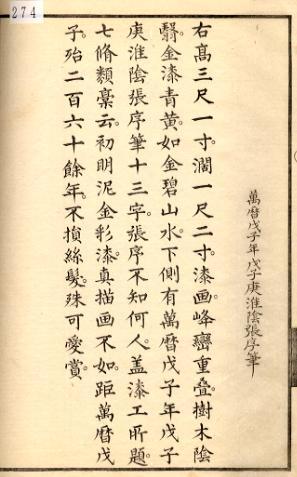 274
萬曆戊子年戊子庚淮陰張序筆
右髙三尺一寸。濶一尺二寸。漆画峰巒重疊樹木陰
翳。金漆青黄。如金碧山水。下側有萬曆戊子年戊子
庚淮陰張序筆十三字。張序不知何人。盖漆工所題。
七脩類藁云。初明泥金彩漆。真描画不如。距萬曆戊
子。殆二百六十餘年。不損絲髮。殊可愛賞。